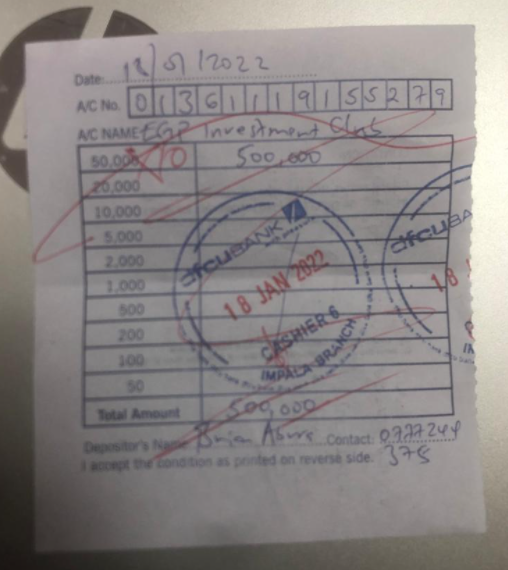 Date: 18/01/2022
A/C No. 01361119155279
A/C NAME EGP Investment Club
50,000 X10 500,000
20,000
10,000
5,000
2,000
1,000
500
200
100
50
Total Amount 500,000
dfcu BANK
18 JAN 2022
CASHIER 6
IMPALA BRANCH
dfcu BA
18
IM
Depositor's Name Contact: 0777244
I accept the condition as printed on reverse side. 375